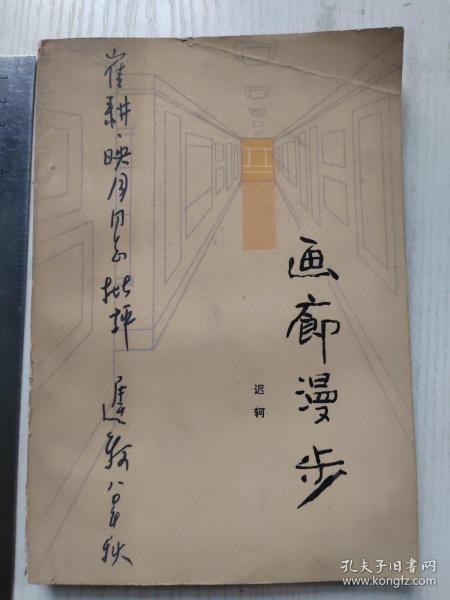 画廊漫步
迟轲
崔耕、映月同志批评 遲軻 八〇年秋
孔夫子旧书网
www.kongfz.com